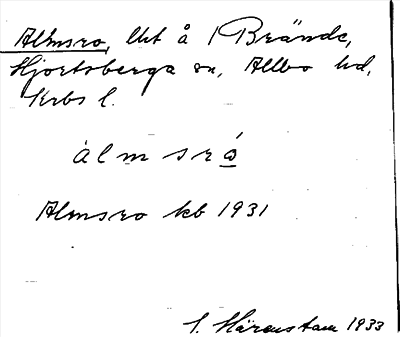 Almsro, lht å 1 Brände,
Hjortsberga sn, Allbo hd,
Krbs l.
àlmsró
Almsro kb 1931
S. Härenstam 1933